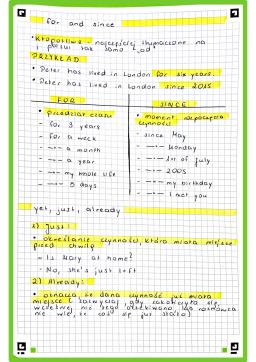 for and since
• Kłopotliwe - najczęściej tłumaczone na
j. polski tak samo "od"
PRZYKŁAD
• Peter has lived in London for six years.
• Peter has lived in London since 2015
FOR SINCE
• przedział czasu • moment rozpoczęcia czynności
- for 3 years - since May
- for a week - —"— Monday
- —"— a month - —"— 1st of July
- —"— a year - —"— 2005
- —"— my whole life - —"— my birthday
- —"— 5 days - —"— I met you
yet, just, already
1) Just:
• określanie czynności, która miała miejsce
przed chwilą
- Is Mary at home?
- No, she's just left
2) Already:
• oznacza że dana czynność już miała
miejsce
wcześniej niż tego oczekiwano, rozmówca
nie wie, że coś się już stało)